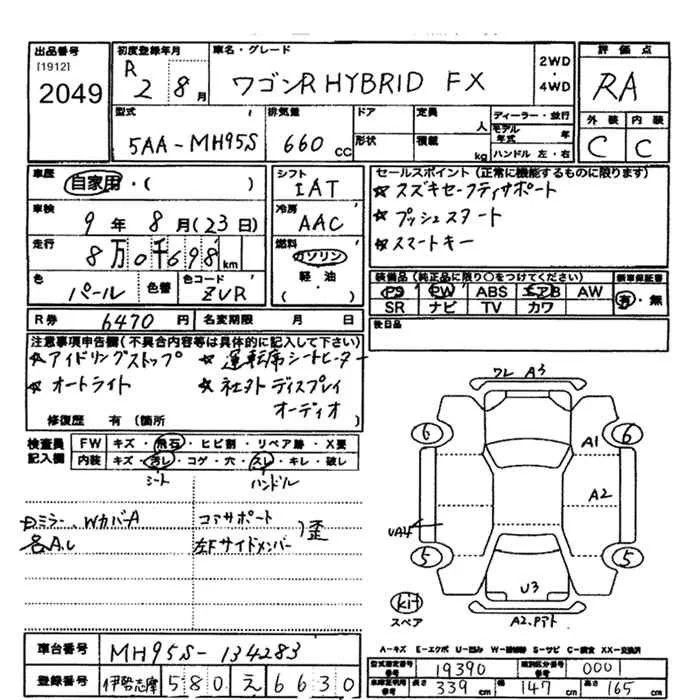 出品番号
[1912]
2049
初度登録年月
R 2 8 月
車名・グレード
ワゴンR HYBRID FX
2WD
・
4WD
評価点
RA
外装 内装
C C
型式
5AA-MH95S
排気量
660 cc
ドア
形状
定員
人
積載
kg
ディーラー・並行
モデル年式 年
ハンドル 左・右
車歴
自家用・( )
車検
9年 8月(23日)
走行
8万0千698 km
色
パール
色替
色コード
ZVR
シフト
IAT
冷房
AAC
燃料
ガソリン
軽・油
( )
セールスポイント(正常に機能するものに限ります)
☆スズキセーフティサポート
☆プッシュスタート
☆スマートキー
装備品(純正品に限り○をつけてください)
PS PW ABS エアB AW
SR ナビ TV カワ
新車保証書
有・無
R券 6470 円
名変期限 月 日
後日品
注意事項申告欄(不具合内容等は具体的に記入して下さい)
☆アイドリングストップ ☆運転席シートヒーター
☆オートライト ☆社外ディスプレイ
オーディオ
修復歴 有(箇所 )
検査員記入欄
FW キズ・飛石・ヒビ割・リペア跡・X要
内装 キズ・汚レ・コゲ・穴・スレ・キレ・破レ
シート ハンドル
ミラー、WカバーA
各A.U
コアサポート
左Fサイドメンバー
)歪
ワレ A3
6 6
A1
A2
UA4
5 5
U3
kit
スペア
A2.アト
A-キズ E-エクボ U-凹み W-補修跡 S-サビ C-腐食 XX-交換済
車台番号
MH95S-134283
登録番号
伊勢志摩 580 え 6630
型式指定番号 19390
類別区分番号 0001
長さ 339 cm 幅 147 cm 高さ 165 cm